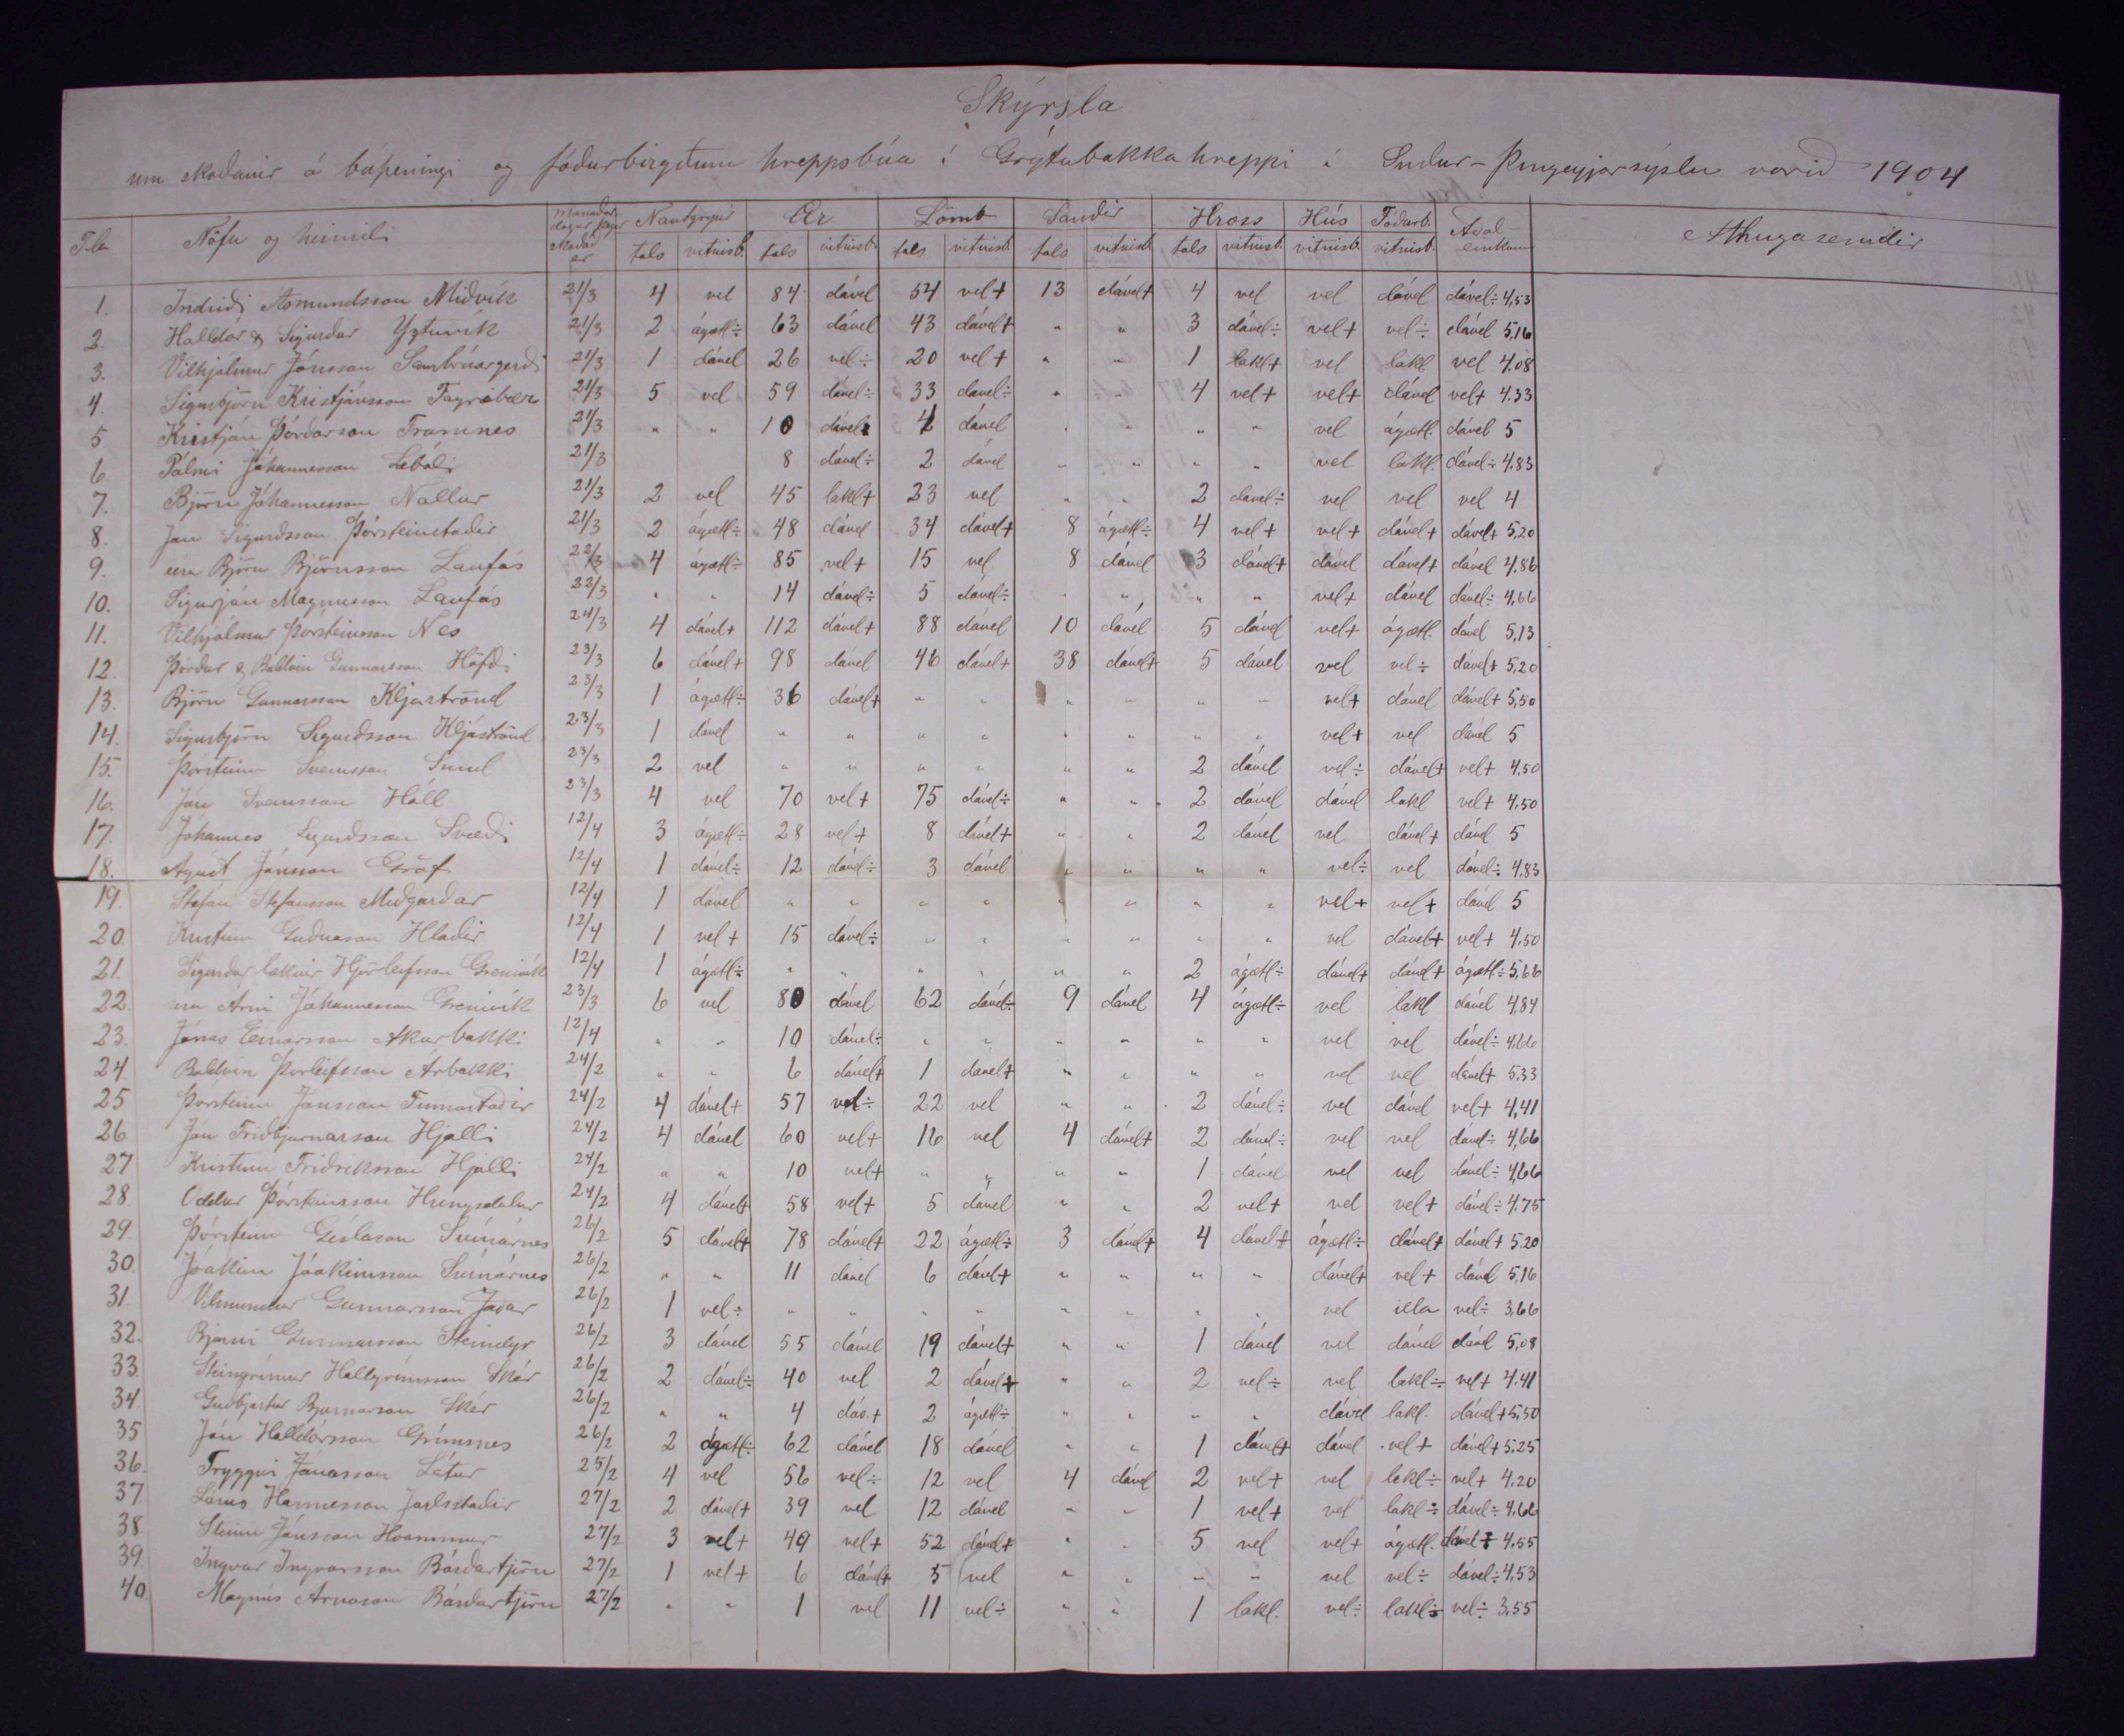 Skýrsla
um skoðanir á búpeningi og fóðurbirgðum hreppsbúa í Grýtubakkahreppi í Suður-Þingeyjarsýslu vorið 1904
T.la Nöfn og heimili Mánaðardagur þegar skoðað er Nautgripir Ær Lömb Sauðir Hross Hús Fóðurb. Aðaleinkunn Athugasemdir
tals vitnisb. tals vitnisb. tals vitnisb. tals vitnisb. tals vitnisb. vitnisb. vitnisb.
1. Indriði Ásmundsson Miðvík 21/3 4 vel 84 dável 54 vel+ 13 dável+ 4 vel vel dável dável÷ 4,53
2. Halldór & Sigurður Ygtuvík 21/3 2 ágætl÷ 63 dável 43 dável+ " " 3 dável÷ vel+ vel÷ dável 5,16
3. Vilhjálmur Jónsson Lambhúsgerði 21/3 1 dável 26 vel÷ 20 vel+ " " 1 lakl+ vel lakl vel 4.08
4. Sigurbjörn Kristjánsson Fagribær 21/3 5 vel 59 dável÷ 33 dável÷ " " 4 vel+ vel+ dável vel+ 4.33
5 Kristján Þórðarson Framnes 21/3 " " 10 dável 4 dável " " " " vel ágætl. dável 5
6 Pálmi Jóhannesson 21/3 8 dável÷ 2 dável " " " " vel lakl. dável÷ 4,83
7. Björn Jóhannesson Nollur 21/3 2 vel 45 lakl+ 23 vel " " 2 dável÷ vel vel vel 4
8. Jón Sigurðsson Þórsteinstaðir 21/3 2 ágætl÷ 48 dável 34 dável+ 8 ágætl÷ 4 vel+ vel+ dável+ dável+ 5,20
9. séra Björn Björnsson Laufás 22/3 4 ágætl÷ 85 vel+ 15 vel 8 dável 3 dável+ dável dável+ dável 4.86
10. Sigurjón Magnusson Laufás 23/3 " " 14 dável÷ 5 dável÷ " " " " vel+ dável dável÷ 4,66
11. Vilhjálmur Þorsteinsson Nes 24/3 4 dável+ 112 dável+ 88 dável 10 dável 5 dável vel+ ágætl. dável 5,13
12. Þórður & Baldvin Gunnarsson Höfði 23/3 6 dável+ 98 dável 46 dável+ 38 dável+ 5 dável vel vel÷ dável+ 5,20
13. Björn Gunnarsson Kljáströnd 23/3 1 ágætl÷ 36 dável+ " " " " " " vel+ dável dável+ 5,50
14. Sigurbjörn Sigurðsson Kljáströnd 23/3 1 dável " " " " " " " " vel+ vel dável 5
15. Þorsteinn Sveinsson Sund 23/3 2 vel " " " " " " 2 dável vel÷ dável+ vel+ 4.50
16. Jón Sveinsson Hóll 23/3 4 vel 70 vel+ 75 dável÷ " " 2 dável dável lakl vel+ 4.50
17. Jóhannes Sigurðsson Svæði 12/4 3 ágætl÷ 28 vel+ 8 dável+ " " 2 dável vel dável+ dável 5
18. Águst Jónsson Gröf 12/4 1 dável÷ 12 dável÷ 3 dável " " " " vel÷ vel dável÷ 4,83
19. Stefán Stefansson Miðgarðar 12/4 1 dável " " " " " " " " vel+ vel+ dável 5
20. Kristinn Guðnason Hlaðir 12/4 1 vel+ 15 dável÷ " " " " " " vel dável+ vel+ 4.50
21. Sigurður læknir Hjörleifsson Grenivík 12/4 1 ágætl÷ " " " " " " 2 ágætl÷ dável+ dável+ ágætl÷ 5,66
22. séra Árni Jóhannesson Grenivík 23/3 6 vel 80 dável 62 dável÷ 9 dável 4 ágætl÷ vel lakl dável 4,84
23. Jónas Einarsson Akurbakki 12/4 " " 10 dável÷ " " " " " " vel vel dável÷ 4,66
24. Baldvin Þorleifsson Árbakki 24/2 " " 6 dável+ 1 dável+ " " " " vel vel dável+ 5.33
25 Þórsteinn Jónsson Finnastaðir 24/2 4 dável+ 57 vel÷ 22 vel " " 2 dável÷ vel dável vel+ 4,41
26 Jón Friðbjarnarson Hjalli 24/2 4 dável 60 vel+ 16 vel 4 dável+ 2 dável÷ vel vel dável÷ 4,66
27 Kristinn Friðriksson Hjalli 24/2 " " 10 vel+ " " " " 1 dável vel vel dável÷ 4,66
28 Oddur Þórsteinsson Hringsdalur 24/2 4 dável+ 58 vel+ 5 dável " " 2 vel+ vel vel+ dável÷ 4.75
29. Þórsteinn Gíslason Svínárnes 26/2 5 dável+ 78 dável+ 22 ágætl÷ 3 dável+ 4 dável+ ágætl÷ dável+ dável+ 5,20
30. Jóakim Jóakimsson Svínárnes 26/2 " " 11 dável 6 dável+ " " " " dável+ vel+ dável 5,16
31. Vilmundur Gunnarsson Jaðar 26/2 1 vel÷ " " " " " " " " vel illa vel÷ 3,66
32. Bjarni Gunnarsson Steindyr 26/2 3 dável 55 dável 19 dável+ " " 1 dável vel dável dável 5,08
33. Steingrímur Hallgrímsson Skér 26/2 2 dável÷ 40 vel 2 dável+ " " 2 vel÷ vel lakl÷ vel+ 4.41
34. Guðbjartur Bjarnarson Skér 26/2 " " 4 dáv.+ 2 ágætl÷ " " " " dável lakl. dável+ 5,50
35 Jón Halldórsson Grímsnes 26/2 2 ágætl÷ 62 dável 18 dável " " 1 dável+ dável vel+ dável+ 5.25
36. Tryggvi Jónasson Látur 25/2 4 vel 56 vel÷ 12 vel 4 dável 2 vel+ vel lakl÷ vel+ 4.20
37. Lárus Hannesson Jarlsstaðir 27/2 2 dável+ 39 vel 12 dável " " 1 vel+ vel lakl÷ dável÷ 4.66
38. Steinn Jónsson Hvammur 27/2 3 vel+ 49 vel+ 52 dável+ " " 5 vel vel+ ágætl. dável÷ 4,55
39. Ingvar Ingvarsson Bárðartjörn 27/2 1 vel+ 6 dável+ 5 vel " " " " vel vel÷ dável÷ 4.53
40. Magnús Arnason Bárðartjörn 27/2 " " 1 vel 11 vel÷ " " 1 lakl. vel÷ lakl÷ vel÷ 3,55